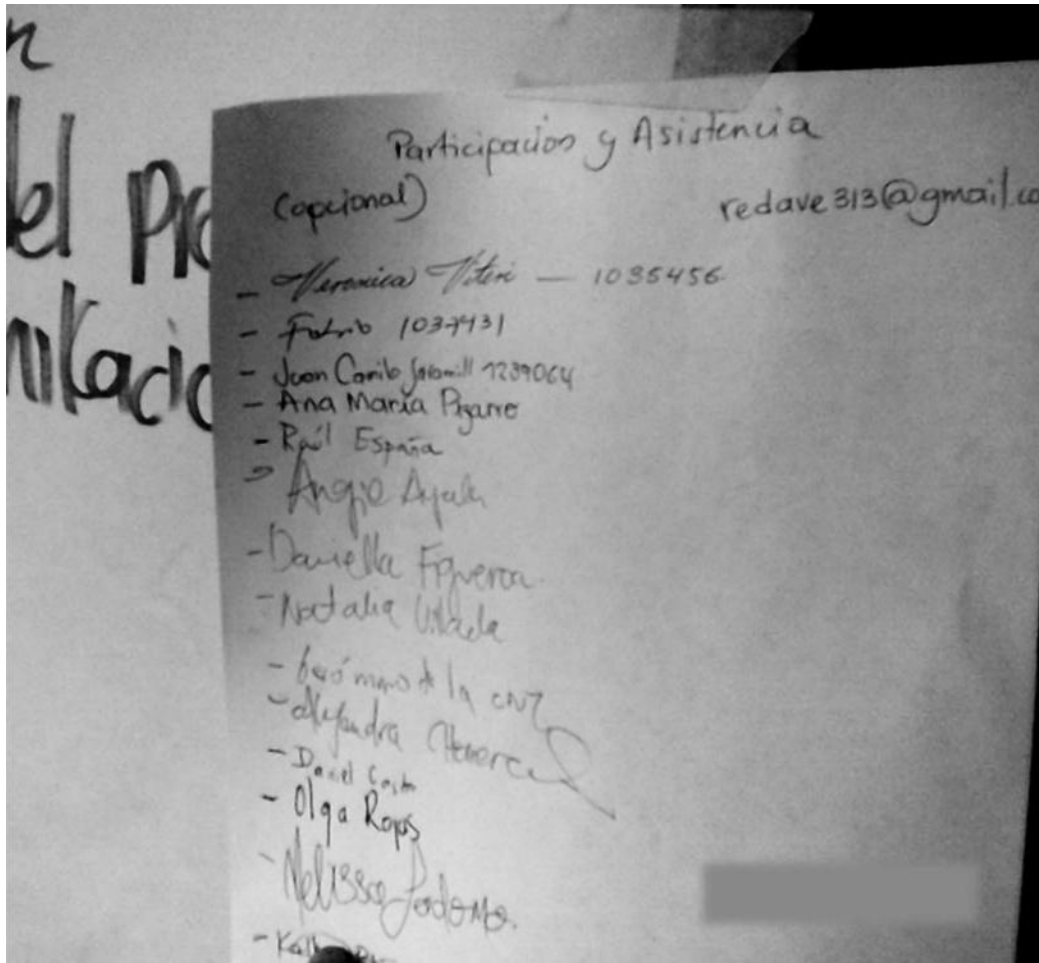 n
el Pro
nitacio
Participación y Asistencia
(opcional)
redave313@gmail.co
- Veronica Viteri — 1035456
- Fabrio 1037431
- Juan Camilo Jaramill 1239064
- Ana María Pizarro
- Raúl España
- Angie Ayala
- Daniella Figueroa
- Natalia
- de la cruz
- Alejandra Herrera
- Daniel Castro
- Olga Rojas
- Melissa Perdomo.